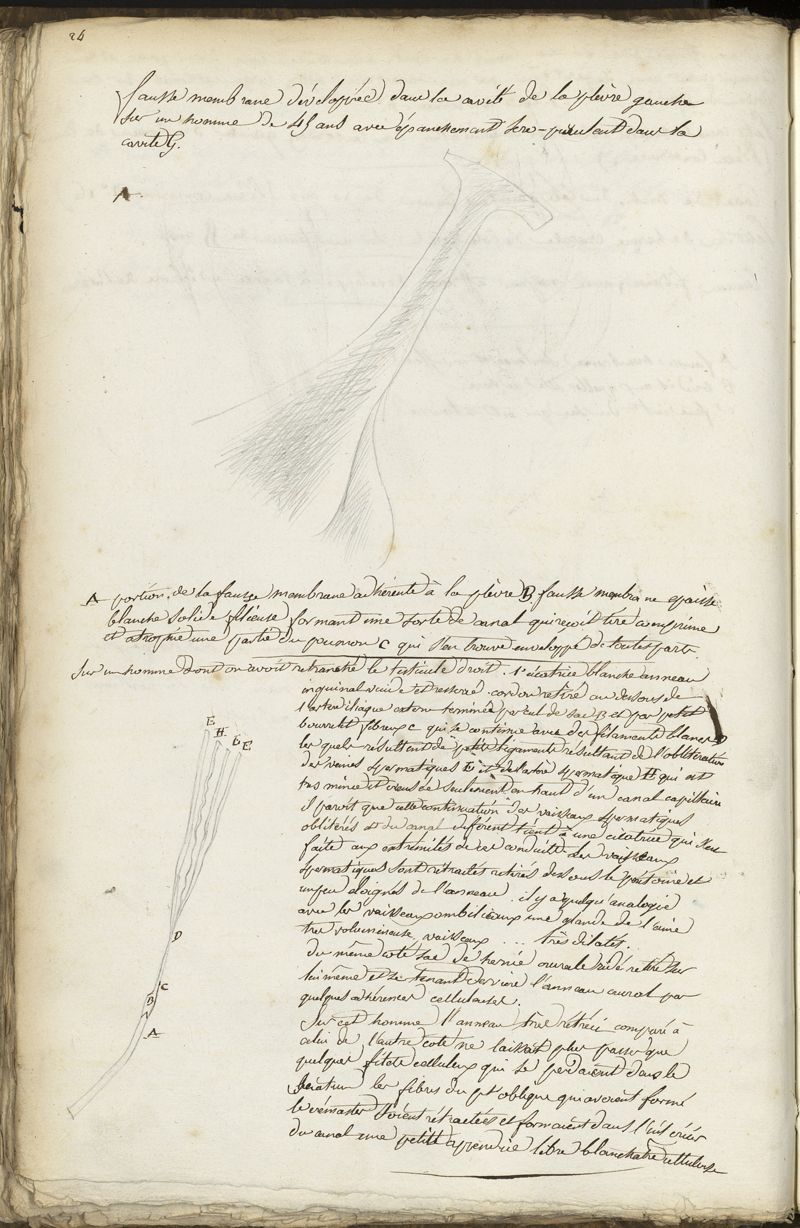 24
fausse membrane développée dans la cavité de la plèvre gauche
sur un homme de 45 ans avec épanchement séro-purulent dans la
cavité G.
A.
A portion de la fausse membrane adhérente à la plèvre B fausse membrane épaisse
blanche solide fibreuse formant une sorte de canal qui reçoit comprime
et atrophie une partie du poumon C qui s'en trouve enveloppé de toutes parts.
Sur un homme dont on avoit retranché le testicule droit. cicatrice blanche anneau
inguinal vuide et resserré cordon retiré au dessous de
l'artère iliaque externe terminée par cul de sac B et par petit
bourrelet fibreux C qui se continue avec des filaments blancs D
lesquels résultent de petits ligaments résultant de l'oblitération
des veines spermatiques E et de l'artère spermatique H qui est
très mince et creusée seulement en haut d'un canal capillaire
il paroit que cette continuation des vaisseaux spermatiques
oblitérés et du canal déférent tient à une cicatrice qui s'est
faite aux extrémités de ces conduits les vaisseaux
spermatiques sont rétractés retirés dessous le péritoine et
un peu éloignés de l'anneau. il y a quelqu'analogie
avec les vaisseaux ombilicaux une glande de l'aine
très volumineuse, vaisseaux ... très dilatés.
du même coté sac de hernie crurale vidé retiré sur
lui même et se tenant derrière l'anneau crural par
quelques adhérences cellulaires.
Sur cet homme l'anneau très rétréci comparé à
celui de l'autre coté ne laissait plus passer que
quelques filets celluleux qui se perdaient dans le
scrotum les fibres du pt oblique qui avoient formé
le crémaster s'étoient rétractées et formaient dans l'intérieur
du canal une petite appendice libre blanchatre celluleuse
E
H
G E
D
C
B
A